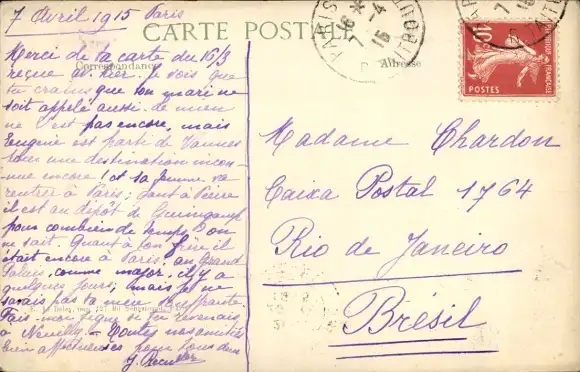 7 Avril 1915 Paris
CARTE POSTALE
Correspondance
Adresse
Merci de ta carte du 16/3
reçue av. hier. Je vois que
tu crains que ton mari ne
soit appelé aussi. Le mien
ne l'est pas encore, mais
Eugène est parti de Vannes
pour une destination incon-
nue encore! et sa femme va
rentrer à Paris; quant à Pierre
il est au dépôt de Guingamp
pour combien de temps? on
ne sait. Quant à ton frère il
était encore à Paris, au Grand
Palais, comme major, il y a
quelques jours; mais je ne
savais pas ta mère souffrante.
Fais-moi signe si tu revenais
à Neuilly. Toutes nos amitiés
bien affectueuses pour tous deux
Madame Chardon
Caixa Postal 1764
Rio de Janeiro
Brésil
PARIS
7 -4
15
10
POSTES